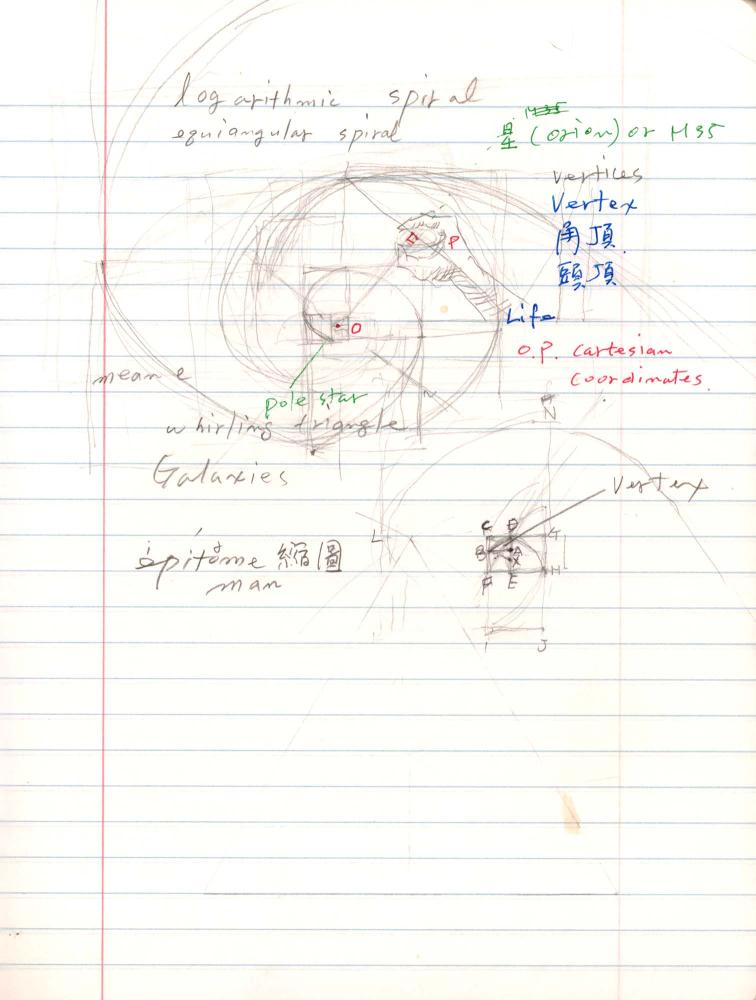 logarithmic spiral
equiangular spiral
M35
星 (orion) or M35
vertices
Vertex
角頂
頭頂
P
O
Life
O.P. Cartesian
Coordinates.
mean
pole star
whirling triangle
N
Galaxies
Vertex
C D G
L
B A
H
F E
épitome 縮圖
man
I J